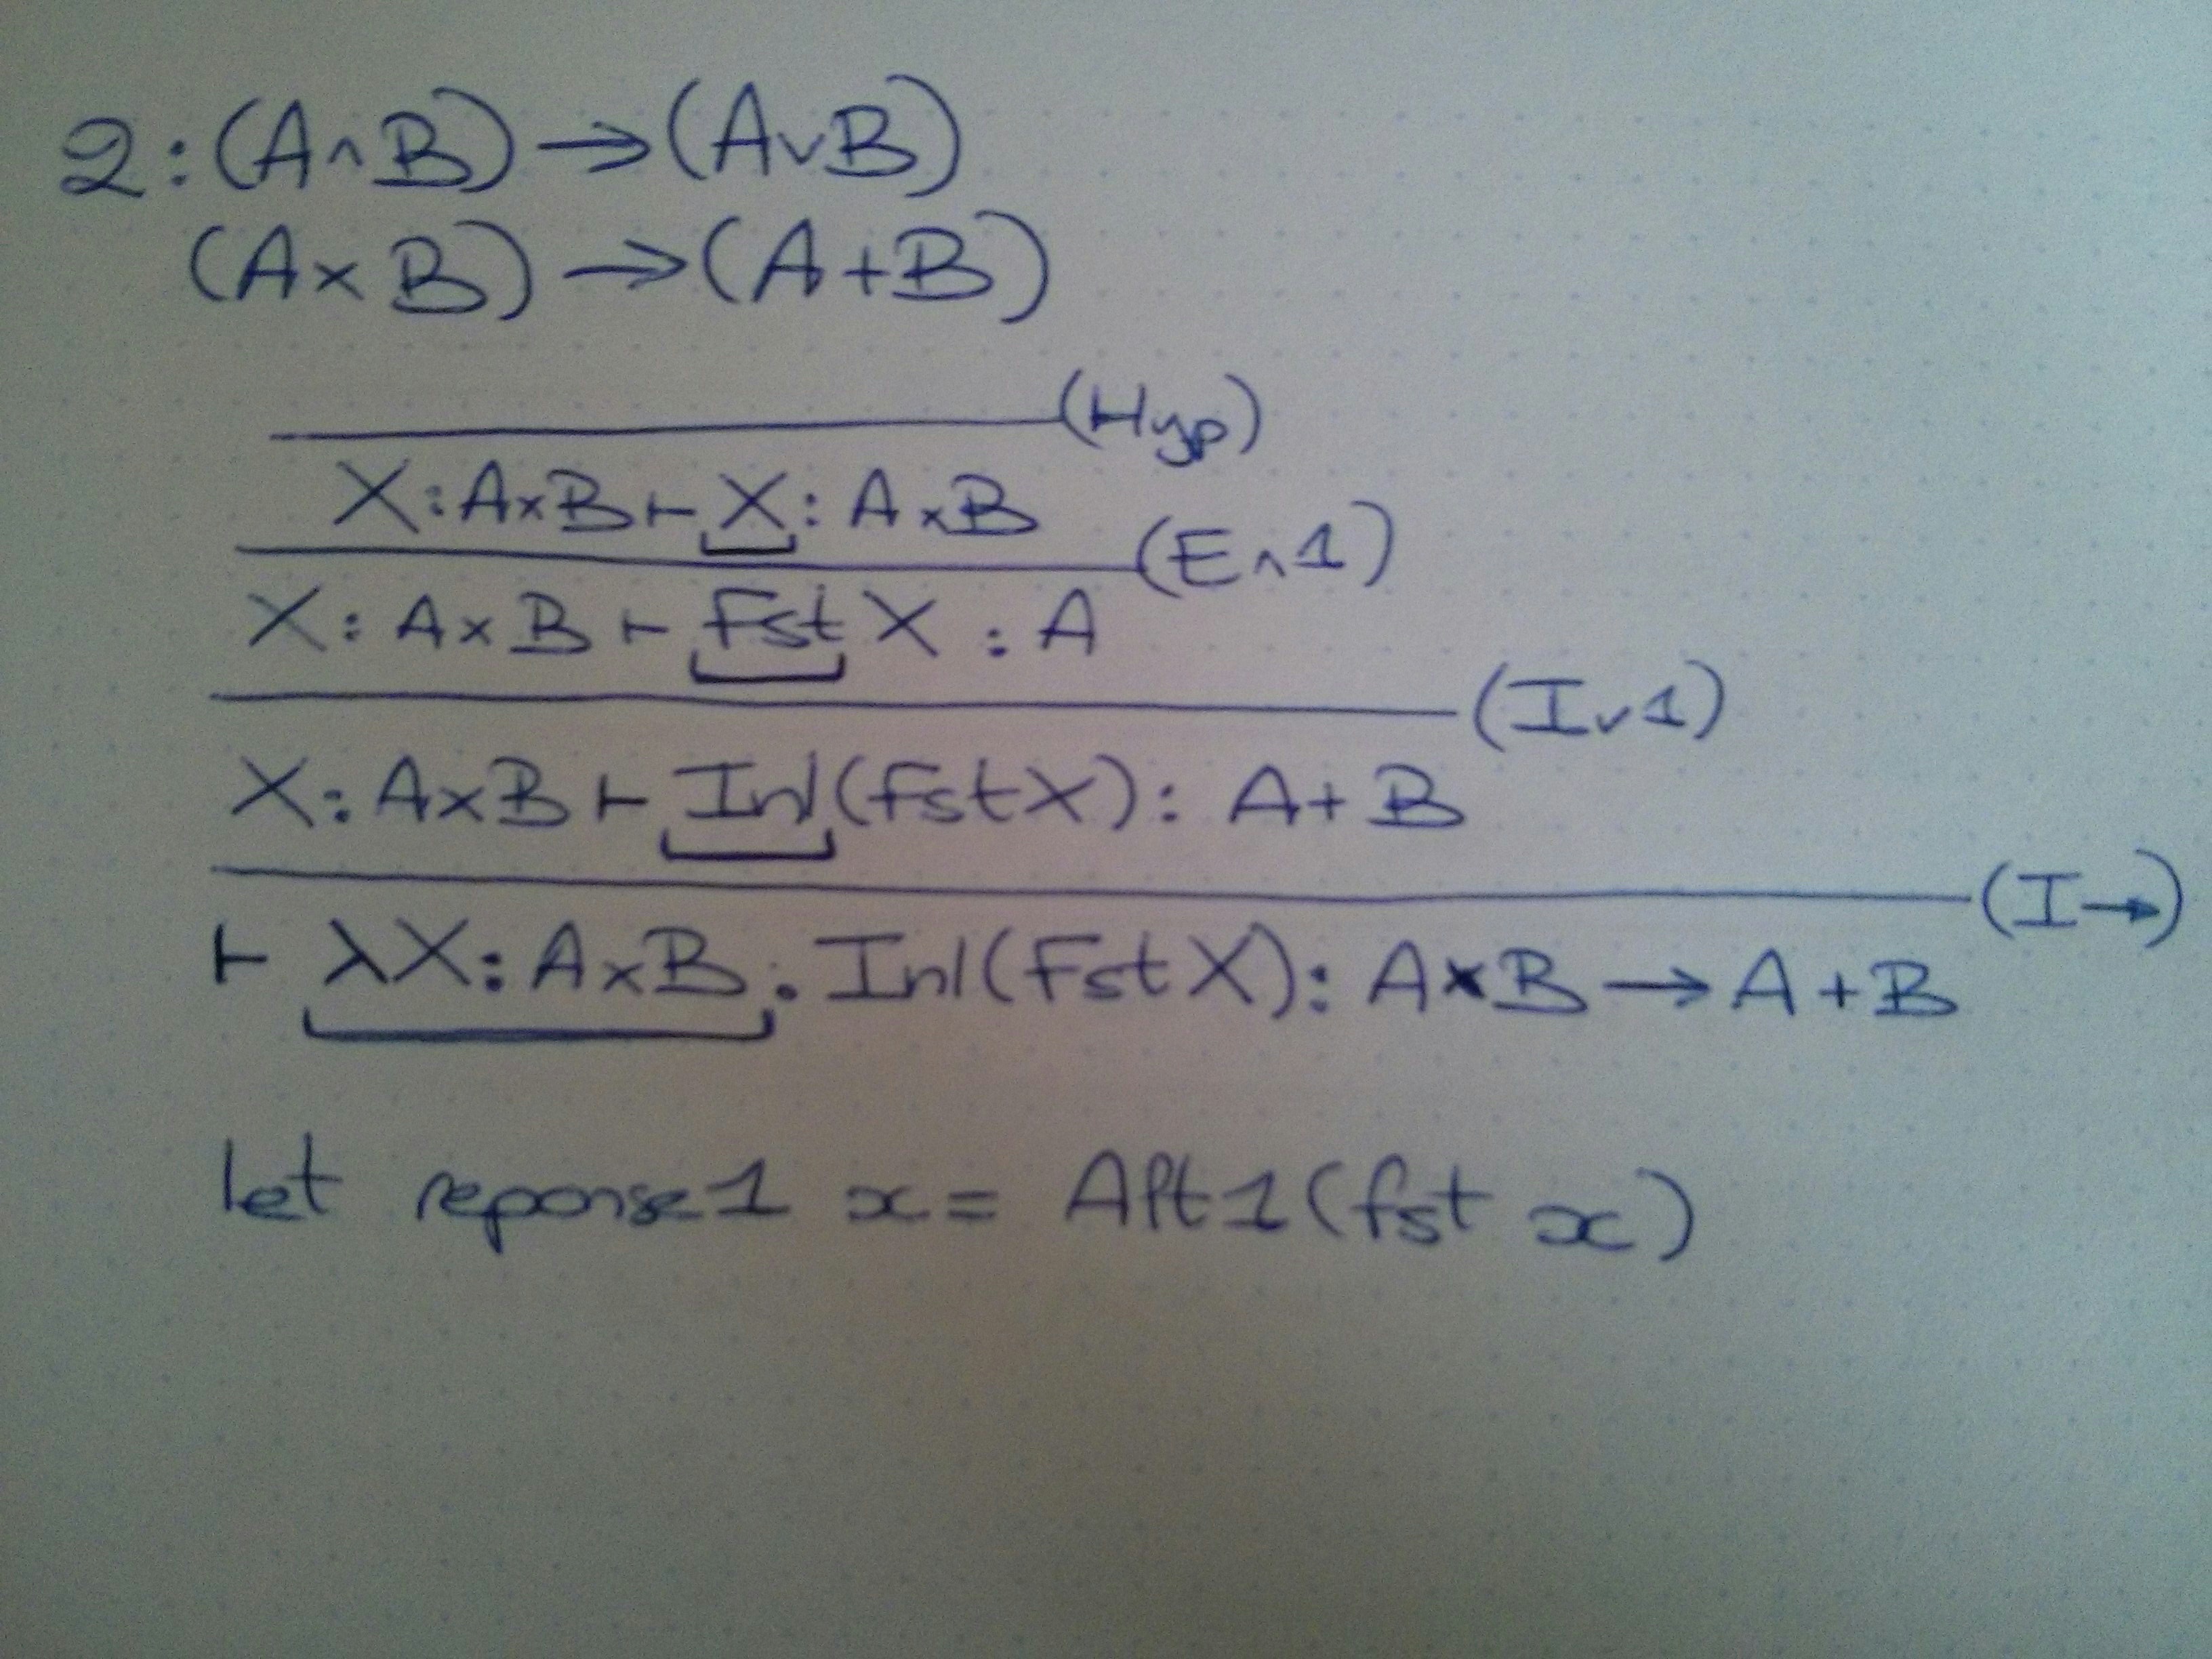 2: (A∧B) → (A∨B)
(A×B) → (A+B)
(Hyp)
X: A×B ⊢ X: A×B
(E∧1)
X: A×B ⊢ Fst X : A
(I∨1)
X: A×B ⊢ Inl(Fst X): A+B
(I→)
⊢ λX: A×B. Inl(Fst X): A×B → A+B
let reponse1 x = Alt1(fst x)